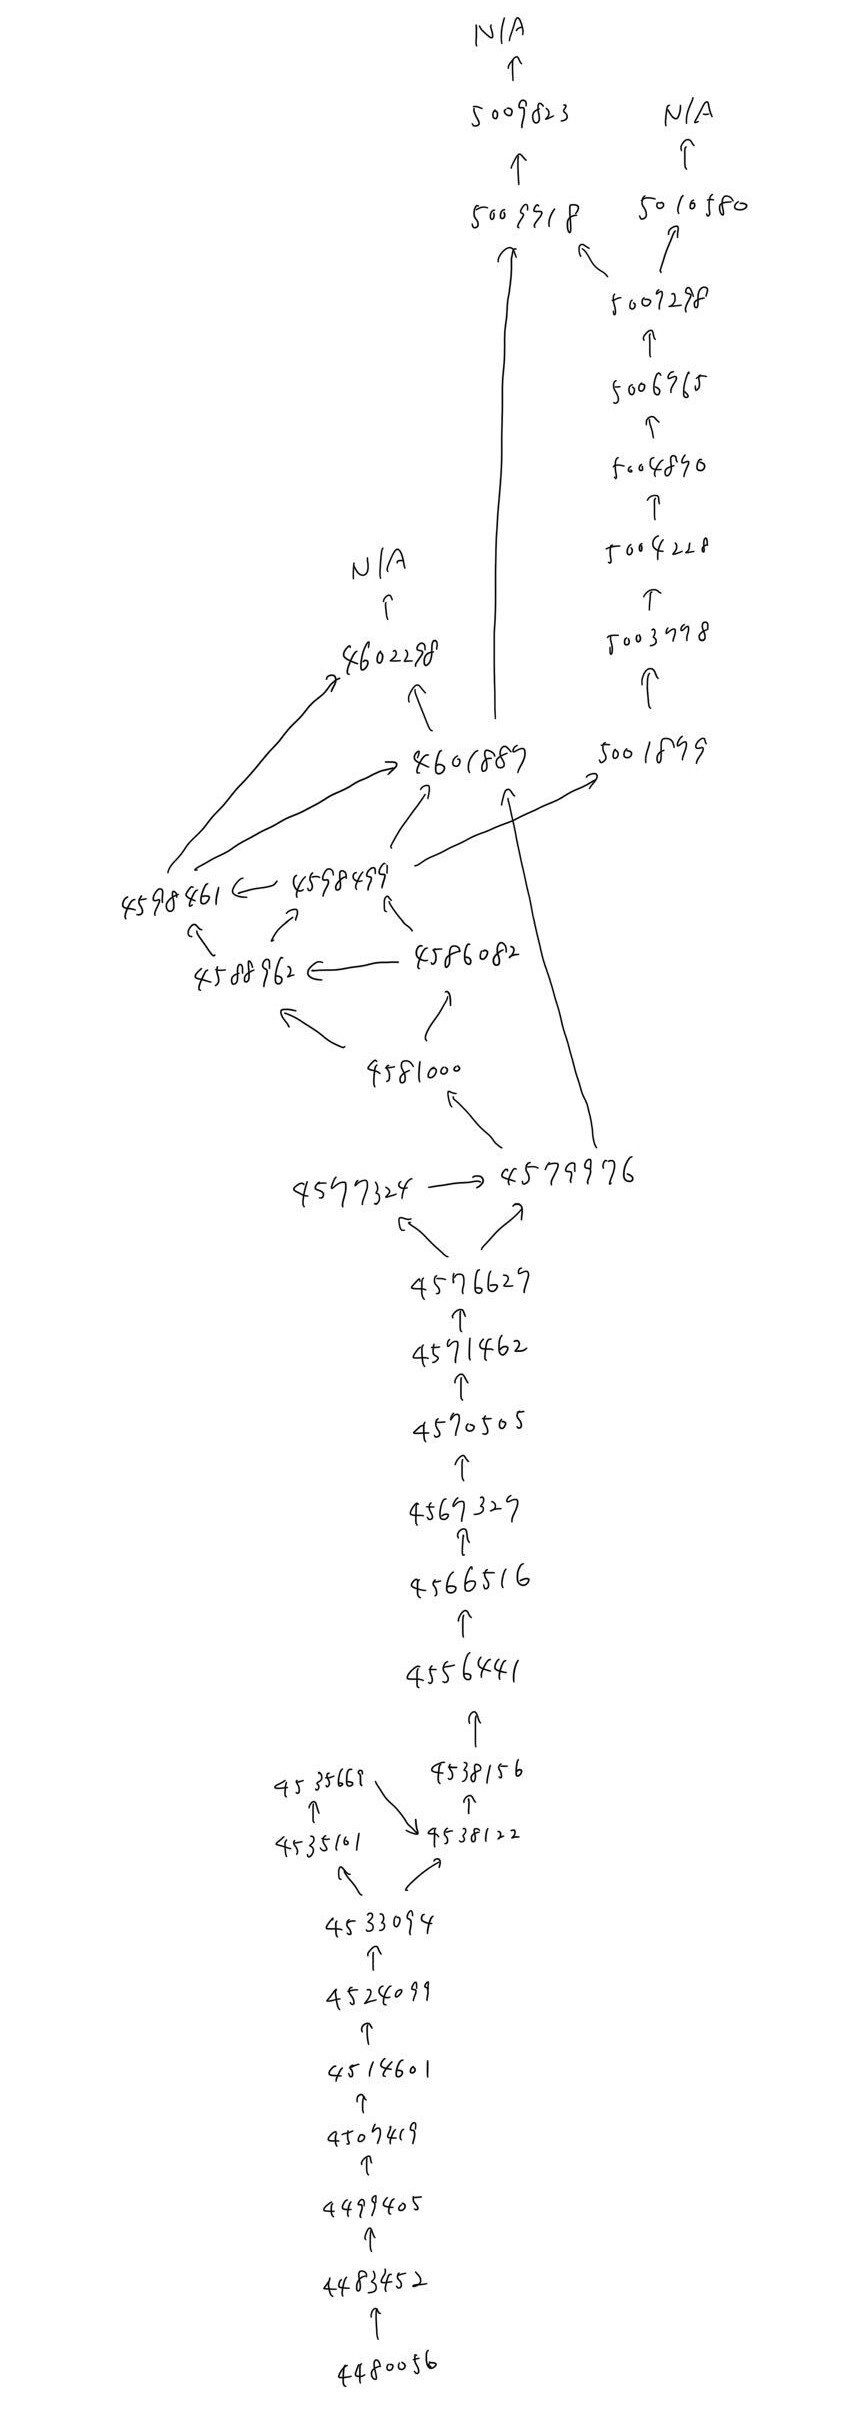 N/A
5009823
N/A
5009918
5010580
5009298
5006965
5004890
5004228
N/A
5003998
4602298
4601889
5001899
4598461
4598499
4588962
4586082
4581000
4577324
4579976
4576629
4571462
4570505
4569329
4566516
4556441
4535669
4538156
4535101
4538122
4533094
4524099
4514601
4507419
4499405
4483452
4480056